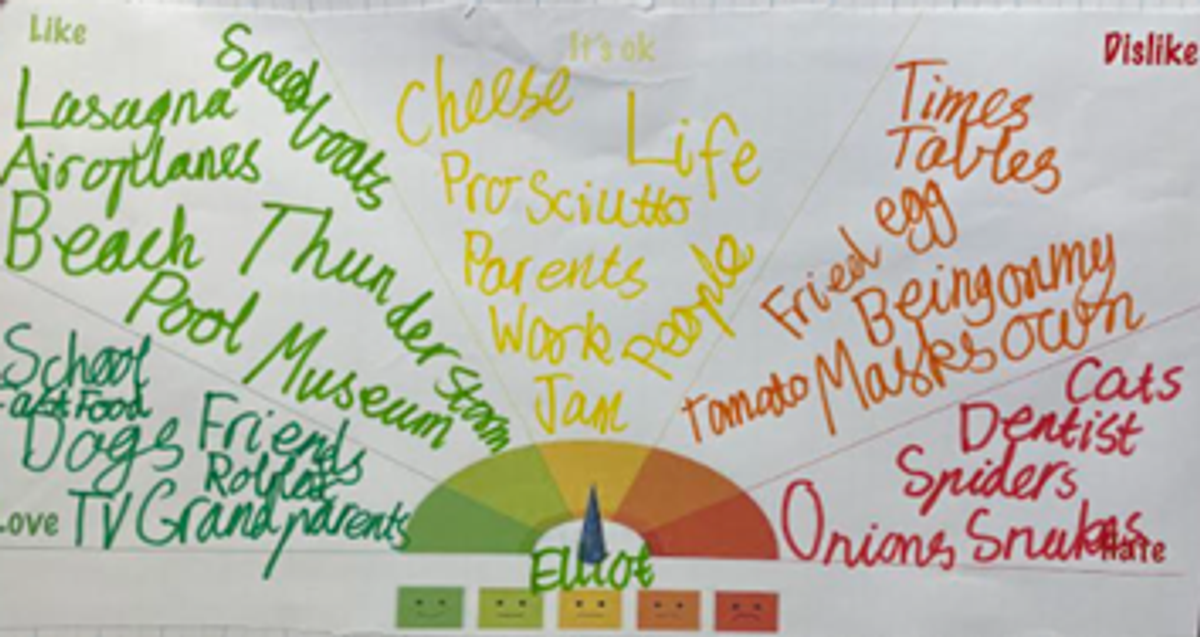 Like
Speed boats
Lasagna
Airoplanes
Beach
Thunder Storm
Pool
Museum
It's ok
Cheese
Life
Prosciutto
Parents
People
Work
Jam
Dislike
Times
Tables
Fried egg
Being on my
own
Masks
Tomato
School
Fast Food
Dogs
Friends
Roblox
TV
Grandparents
Love
Cats
Dentist
Spiders
Onions
Snakes
Hate
Elliot